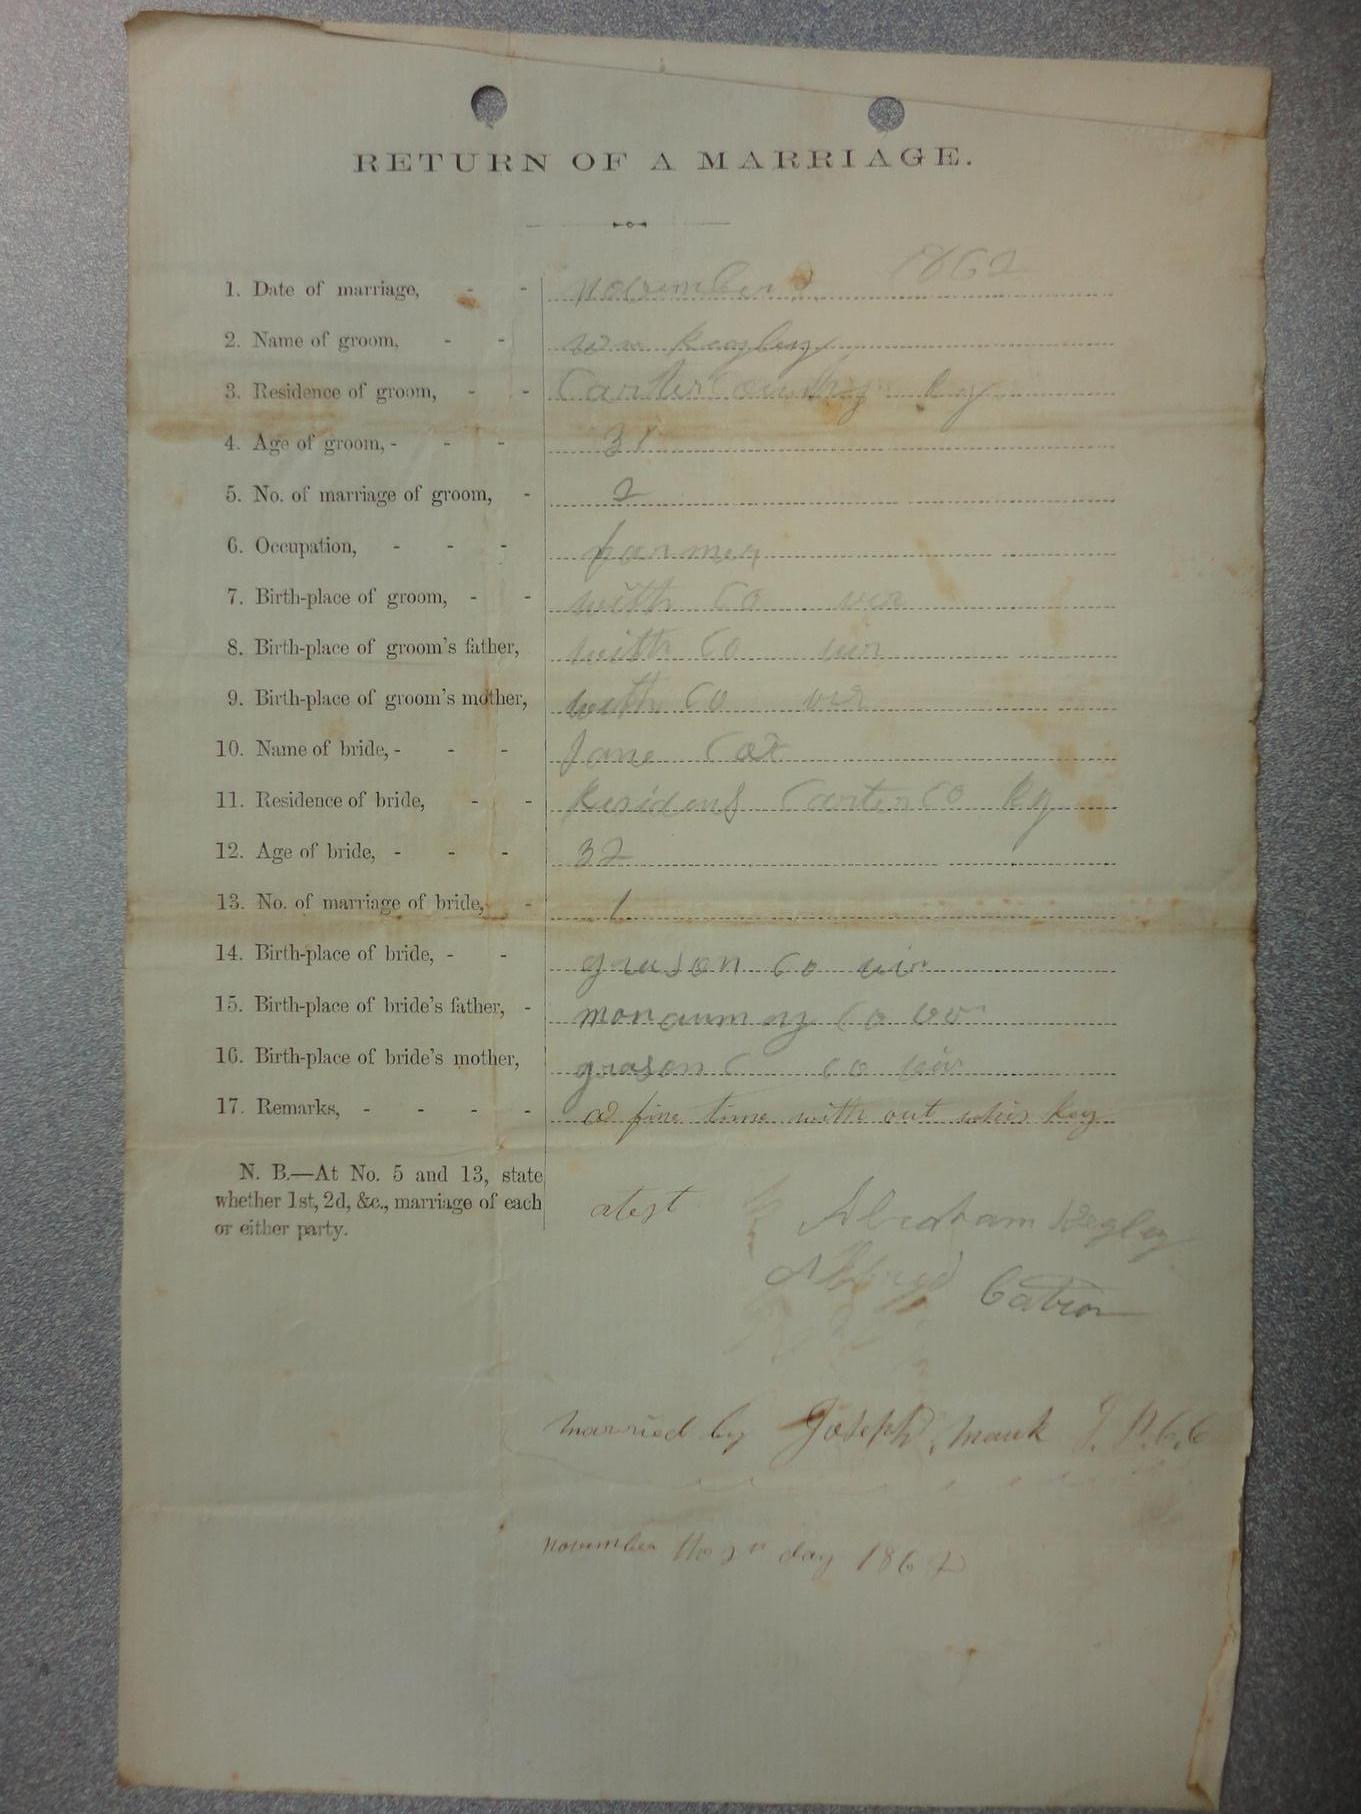 RETURN OF A MARRIAGE.
1. Date of marriage, - - november 1862
2. Name of groom, - - wm keagley
3. Residence of groom, - - Carter County ky
4. Age of groom, - - - 31
5. No. of marriage of groom, - 2
6. Occupation, - - - farmer
7. Birth-place of groom, - - with Co vir
8. Birth-place of groom's father, with Co vir
9. Birth-place of groom's mother, with Co vir
10. Name of bride, - - - Jane Cox
11. Residence of bride, - - Carter Co ky
12. Age of bride, - - - 32
13. No. of marriage of bride, - 1
14. Birth-place of bride, - - grason Co vir
15. Birth-place of bride's father, - Co
16. Birth-place of bride's mother, grason co vir
17. Remarks, - - - - a fine time with out whis key
N. B.—At No. 5 and 13, state
whether 1st, 2d, &c., marriage of each
or either party.
atest Abraham
Catron
married by Joseph mauk J. P. C. C
november day 1862